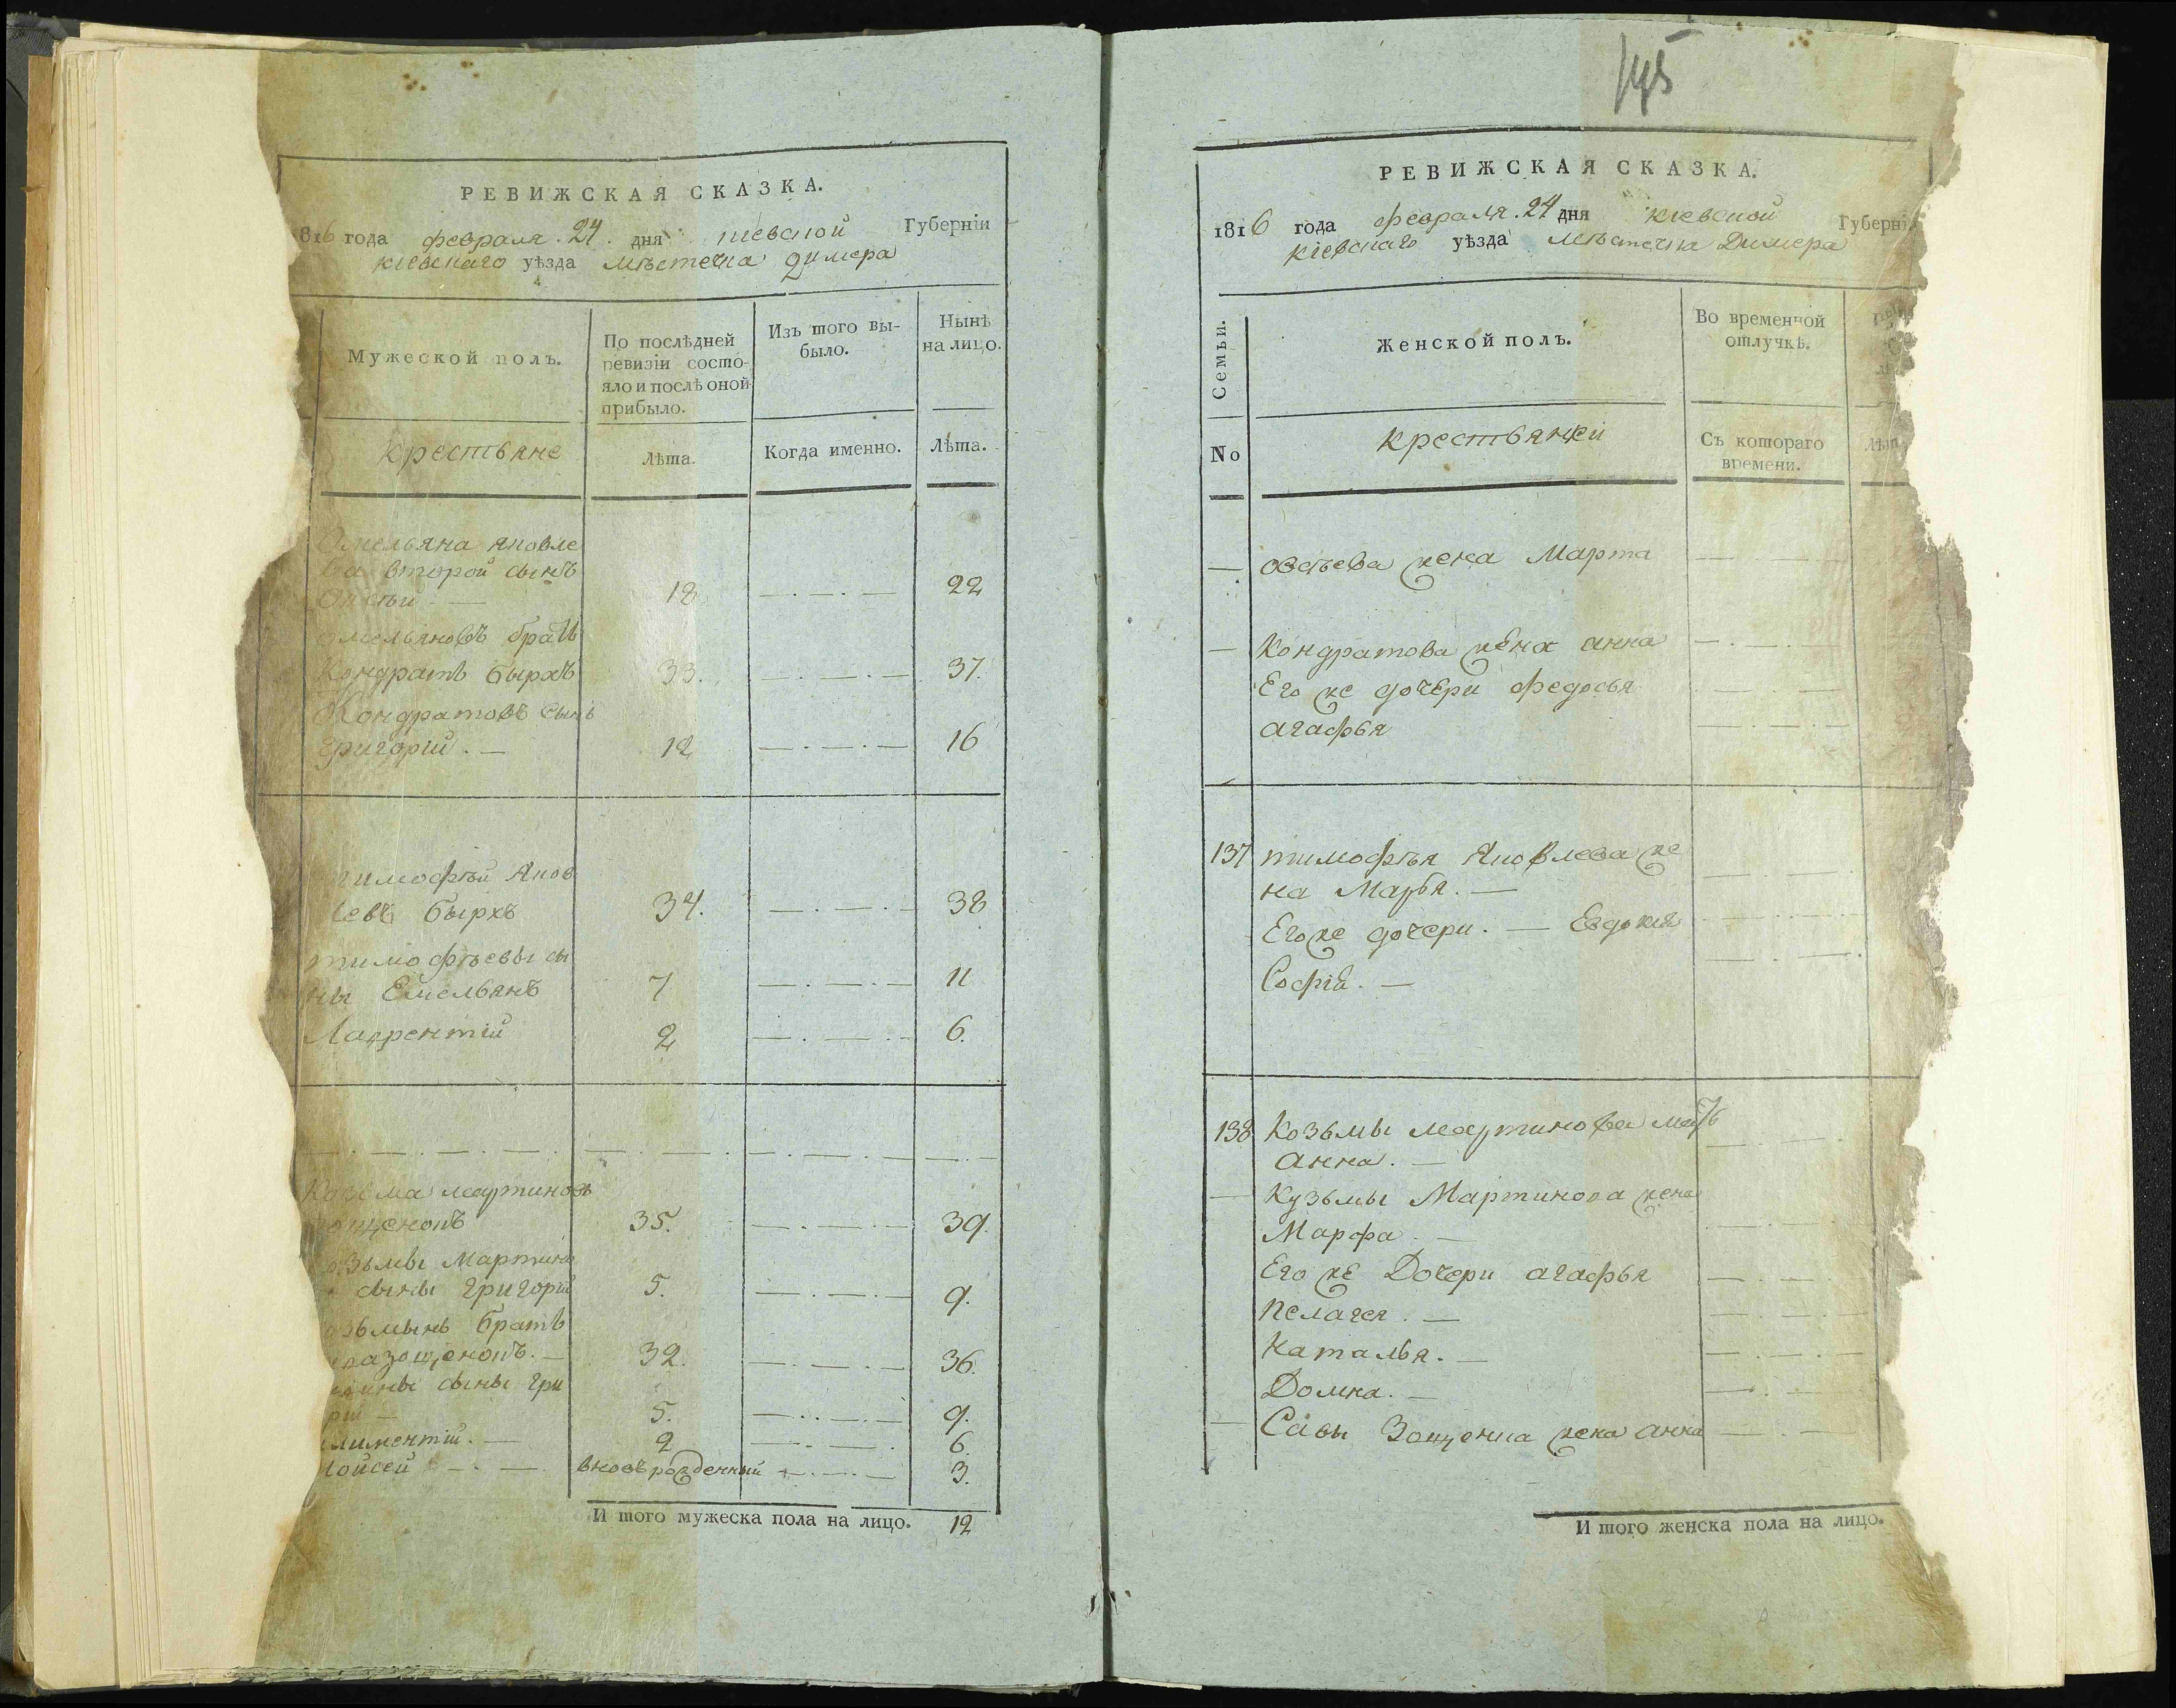 РЕВИЖСКАЯ СКАЗКА.
816 года февраля. 24. дня кіевской Губерніи
кіевскаго уѣзда мѣстечка Димера
Мужеской полъ.
По послѣдней
ревизіи состо-
яло и послѣ оной
прибыло.
Изъ того вы-
было.
Нынѣ
на лицо.
крестьяне
Лѣта.
Когда именно.
Лѣта.
Омельяна яковле
ва второй сынъ
18 22
Омельяновъ братъ
Кондратъ Бырхъ 33. 37.
Кондратовъ сынъ
григорій. 12 16
тимофѣй Яков
левъ Бырхъ 34. 38
тимофѣевы сы
ны Емельянъ 7 11
Лаврентій 2 6.
Козьма мартиновъ
35. 39.
озьмы Мартино
сыны григорій 5. 9.
озьминъ братъ
32. 36.
сыны гри
рій 5. 9.
лиментій. 2 6.
ойсей вновърожденный 3.
И того мужеска пола на лицо. 12
195
РЕВИЖСКАЯ СКАЗКА.
1816 года февраля. 24 дня кіевской Губерні
кіевскаго уѣзда мѣстечка Димера
Семьи.
Женской полъ.
Во временной
отлучкѣ.
No
крестьянки
Съ котораго
времени.
Лѣт
жена Марта
Кондратова жена анна
Его же дочери федосья
агафья
137 тимофѣя Яковлева же
на Марья.
Его же дочери. Евдокия
Софія.
138 Козьмы мартинова мать
анна.
Кузьмы Мартинова жена
Марфа.
Его же Дочери агафья
пелагея.
Наталья.
Домна.
Савы Зощенка жена анна
И того женска пола на лицо.